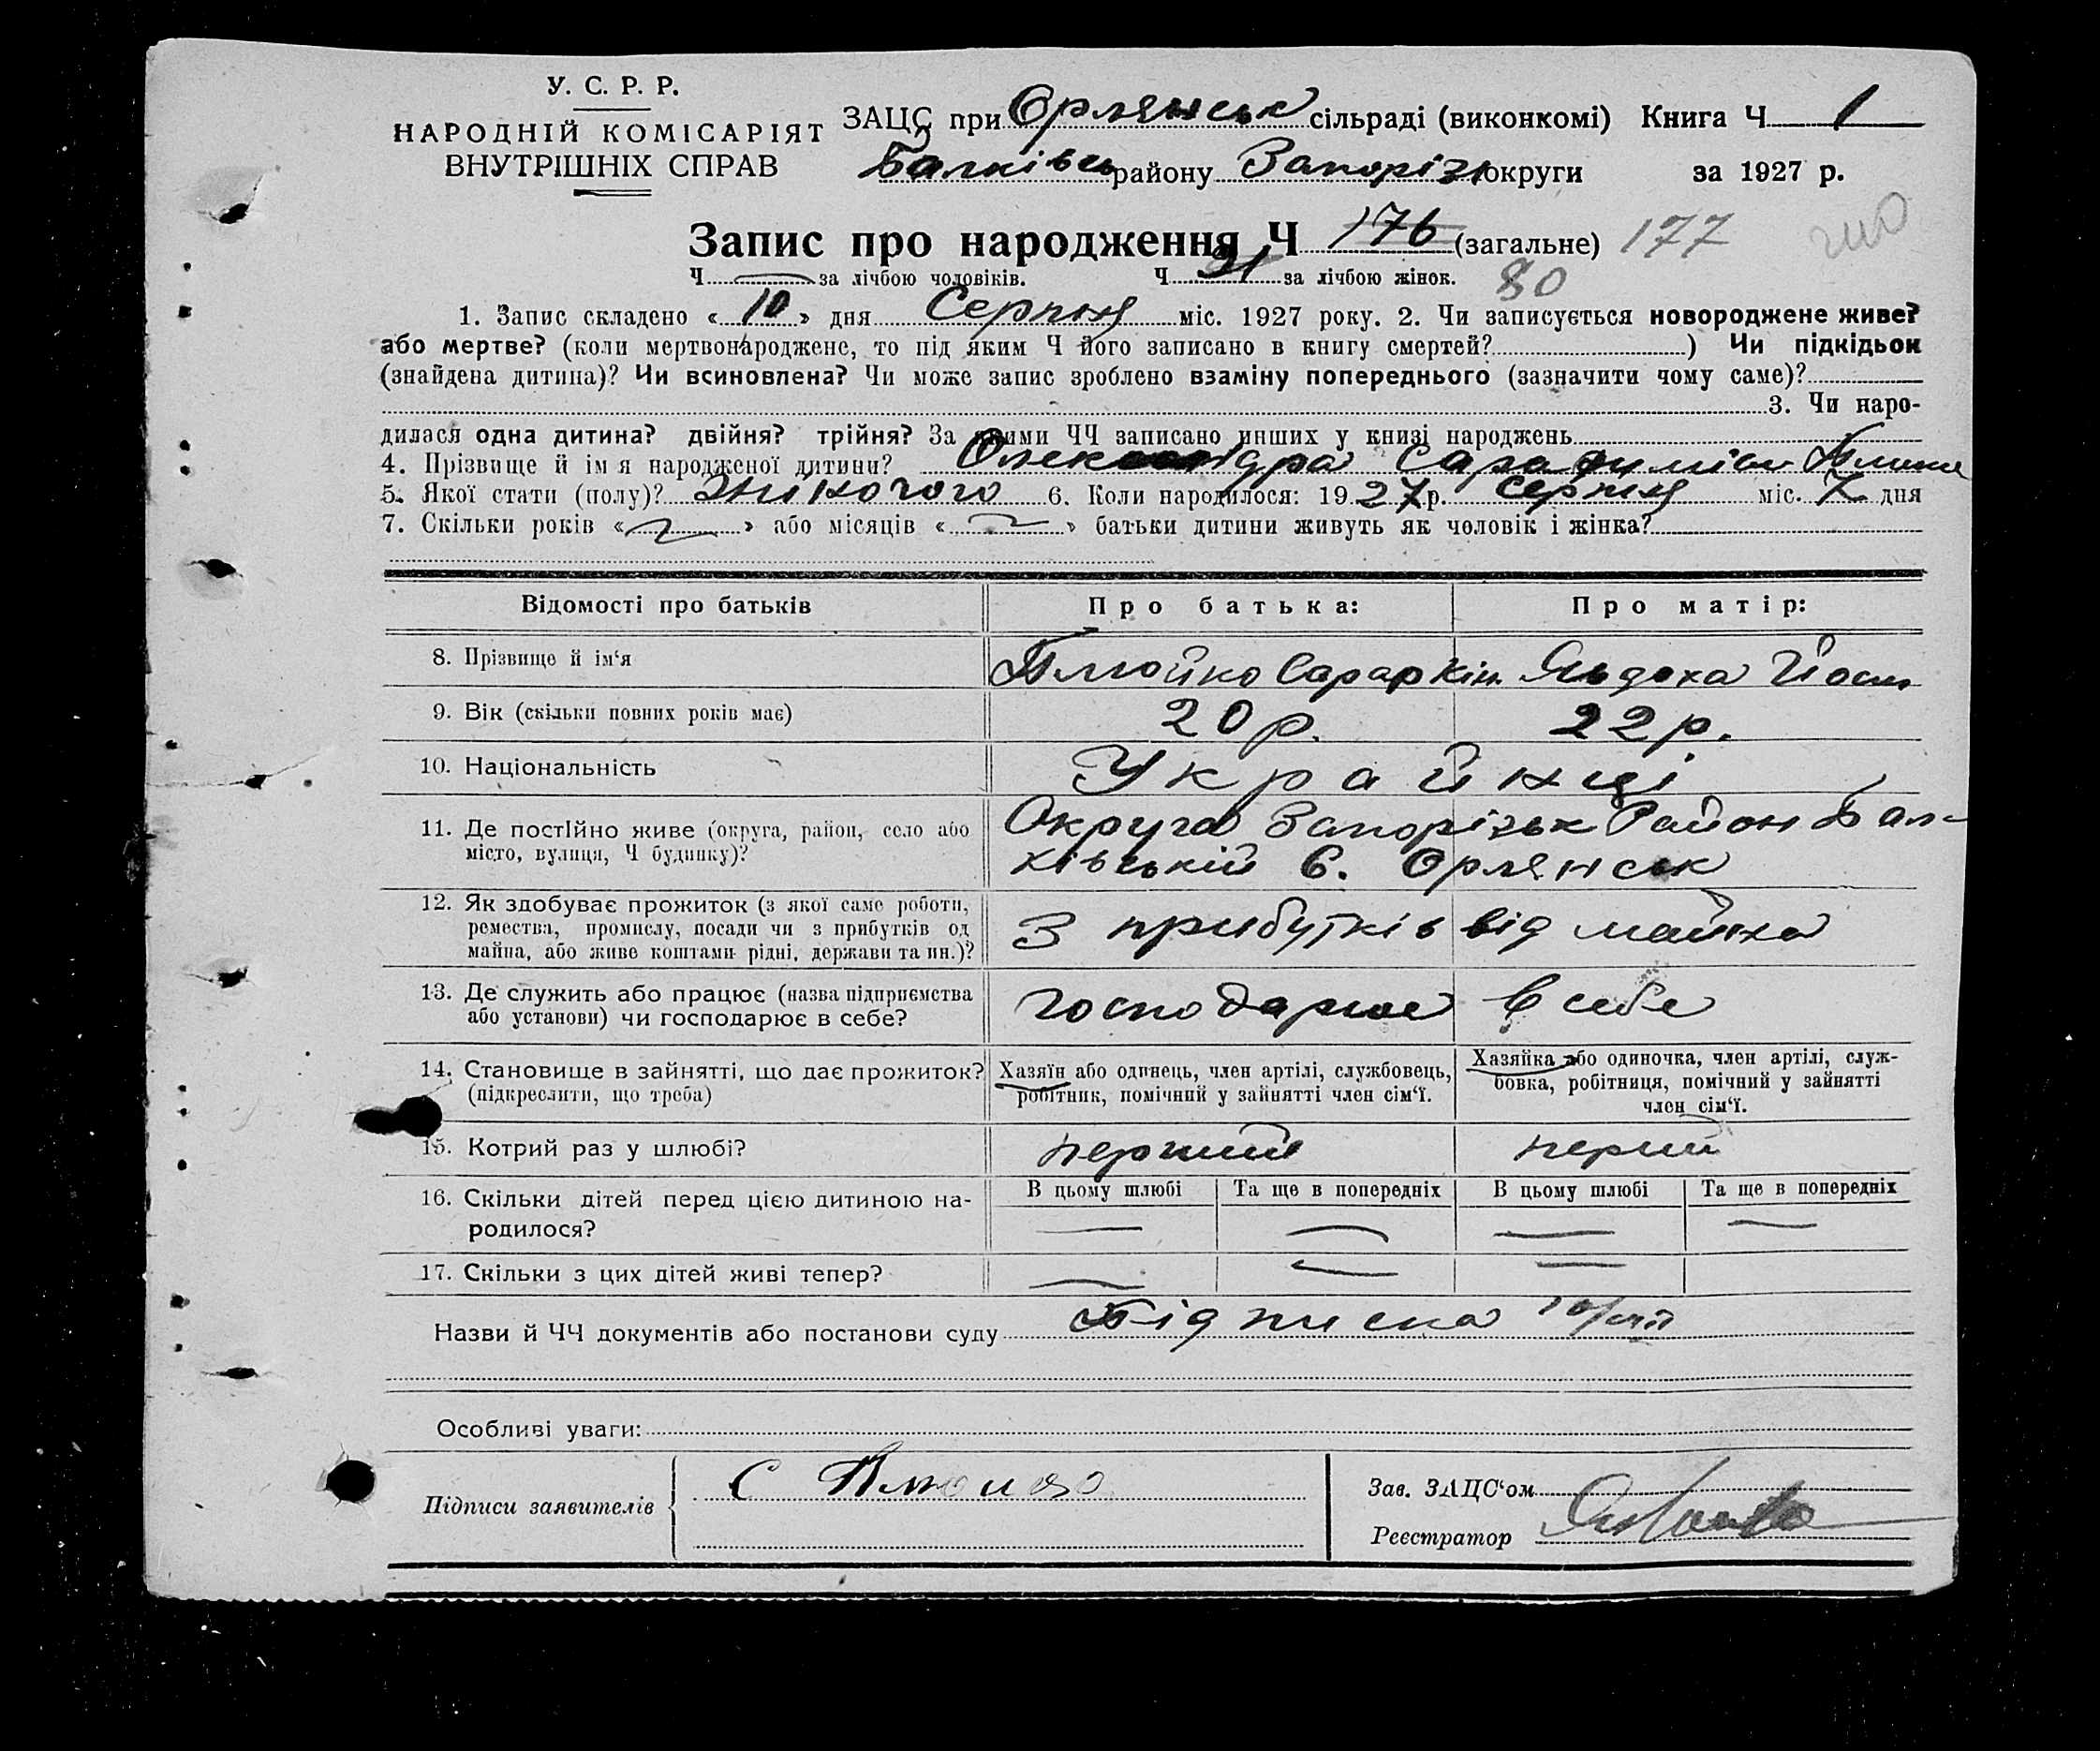 У. С. Р. Р.
НАРОДНІЙ КОМІСАРІЯТ
ВНУТРІШНІХ СПРАВ
ЗАЦС при Орлянськ сільраді (виконкомі) Книга Ч 1
Балківсь району Запорізь округи за 1927 р.
Запис про народження Ч 176 (загальне) 177
Ч — за лічбою чоловіків. Ч за лічбою жінок. 80
1. Запис складено « 10 » дня Серпня міс. 1927 року. 2. Чи записується новороджене живе?
або мертве? (коли мертвонароджене, то під яким Ч його записано в книгу смертей? ) Чи підкідьок
(знайдена дитина)? Чи всиновлена? Чи може запис зроблено взаміну попереднього (зазначити чому саме)?
3. Чи наро-
дилася одна дитина? двійня? трійня? За якими ЧЧ записано инших у книзі народжень
4. Прізвище й імя народженої дитини?
5. Якої стати (полу)? жіночого 6. Коли народилося: 1927 р. серпня міс. 7 дня
7. Скільки років « » або місяців « » батьки дитини живуть як чоловік і жінка?
Відомості про батьків Про батька: Про матір:
8. Прізвище й ім‘я
9. Вік (скільки повних років має) 20 р. 22 р.
10. Національність Украйнці
11. Де постійно живе (округа, район, село або Округа Запорізьк Район Бал-
місто, вулиця, Ч будинку)? ківській С. Орлянськ
12. Як здобуває прожиток (з якої саме роботи,
ремества, промислу, посади чи з прибутків од З прибутків від майна
майна, або живе коштами рідні, держави та ин.)?
13. Де служить або працює (назва підприємства господарює в себе
або установи) чи господарює в себе?
14. Становище в зайнятті, що дає прожиток? Хазяїн або одинець, член артілі, службовець, Хазяйка або одиночка, член артілі, служ-
(підкреслити, що треба) робітник, помічний у зайнятті член сім‘ї. бовка, робітниця, помічний у зайнятті
член сім‘ї.
15. Котрий раз у шлюбі? перший перший
16. Скільки дітей перед цією дитиною на- В цьому шлюбі Та ще в попередніх В цьому шлюбі Та ще в попередніх
родилося? — — — —
17. Скільки з цих дітей живі тепер? — — —
Назви й ЧЧ документів або постанови суду Підписка
Особливі уваги:
Підписи заявителів
Зав. ЗАЦС‘ом
Реєстратор